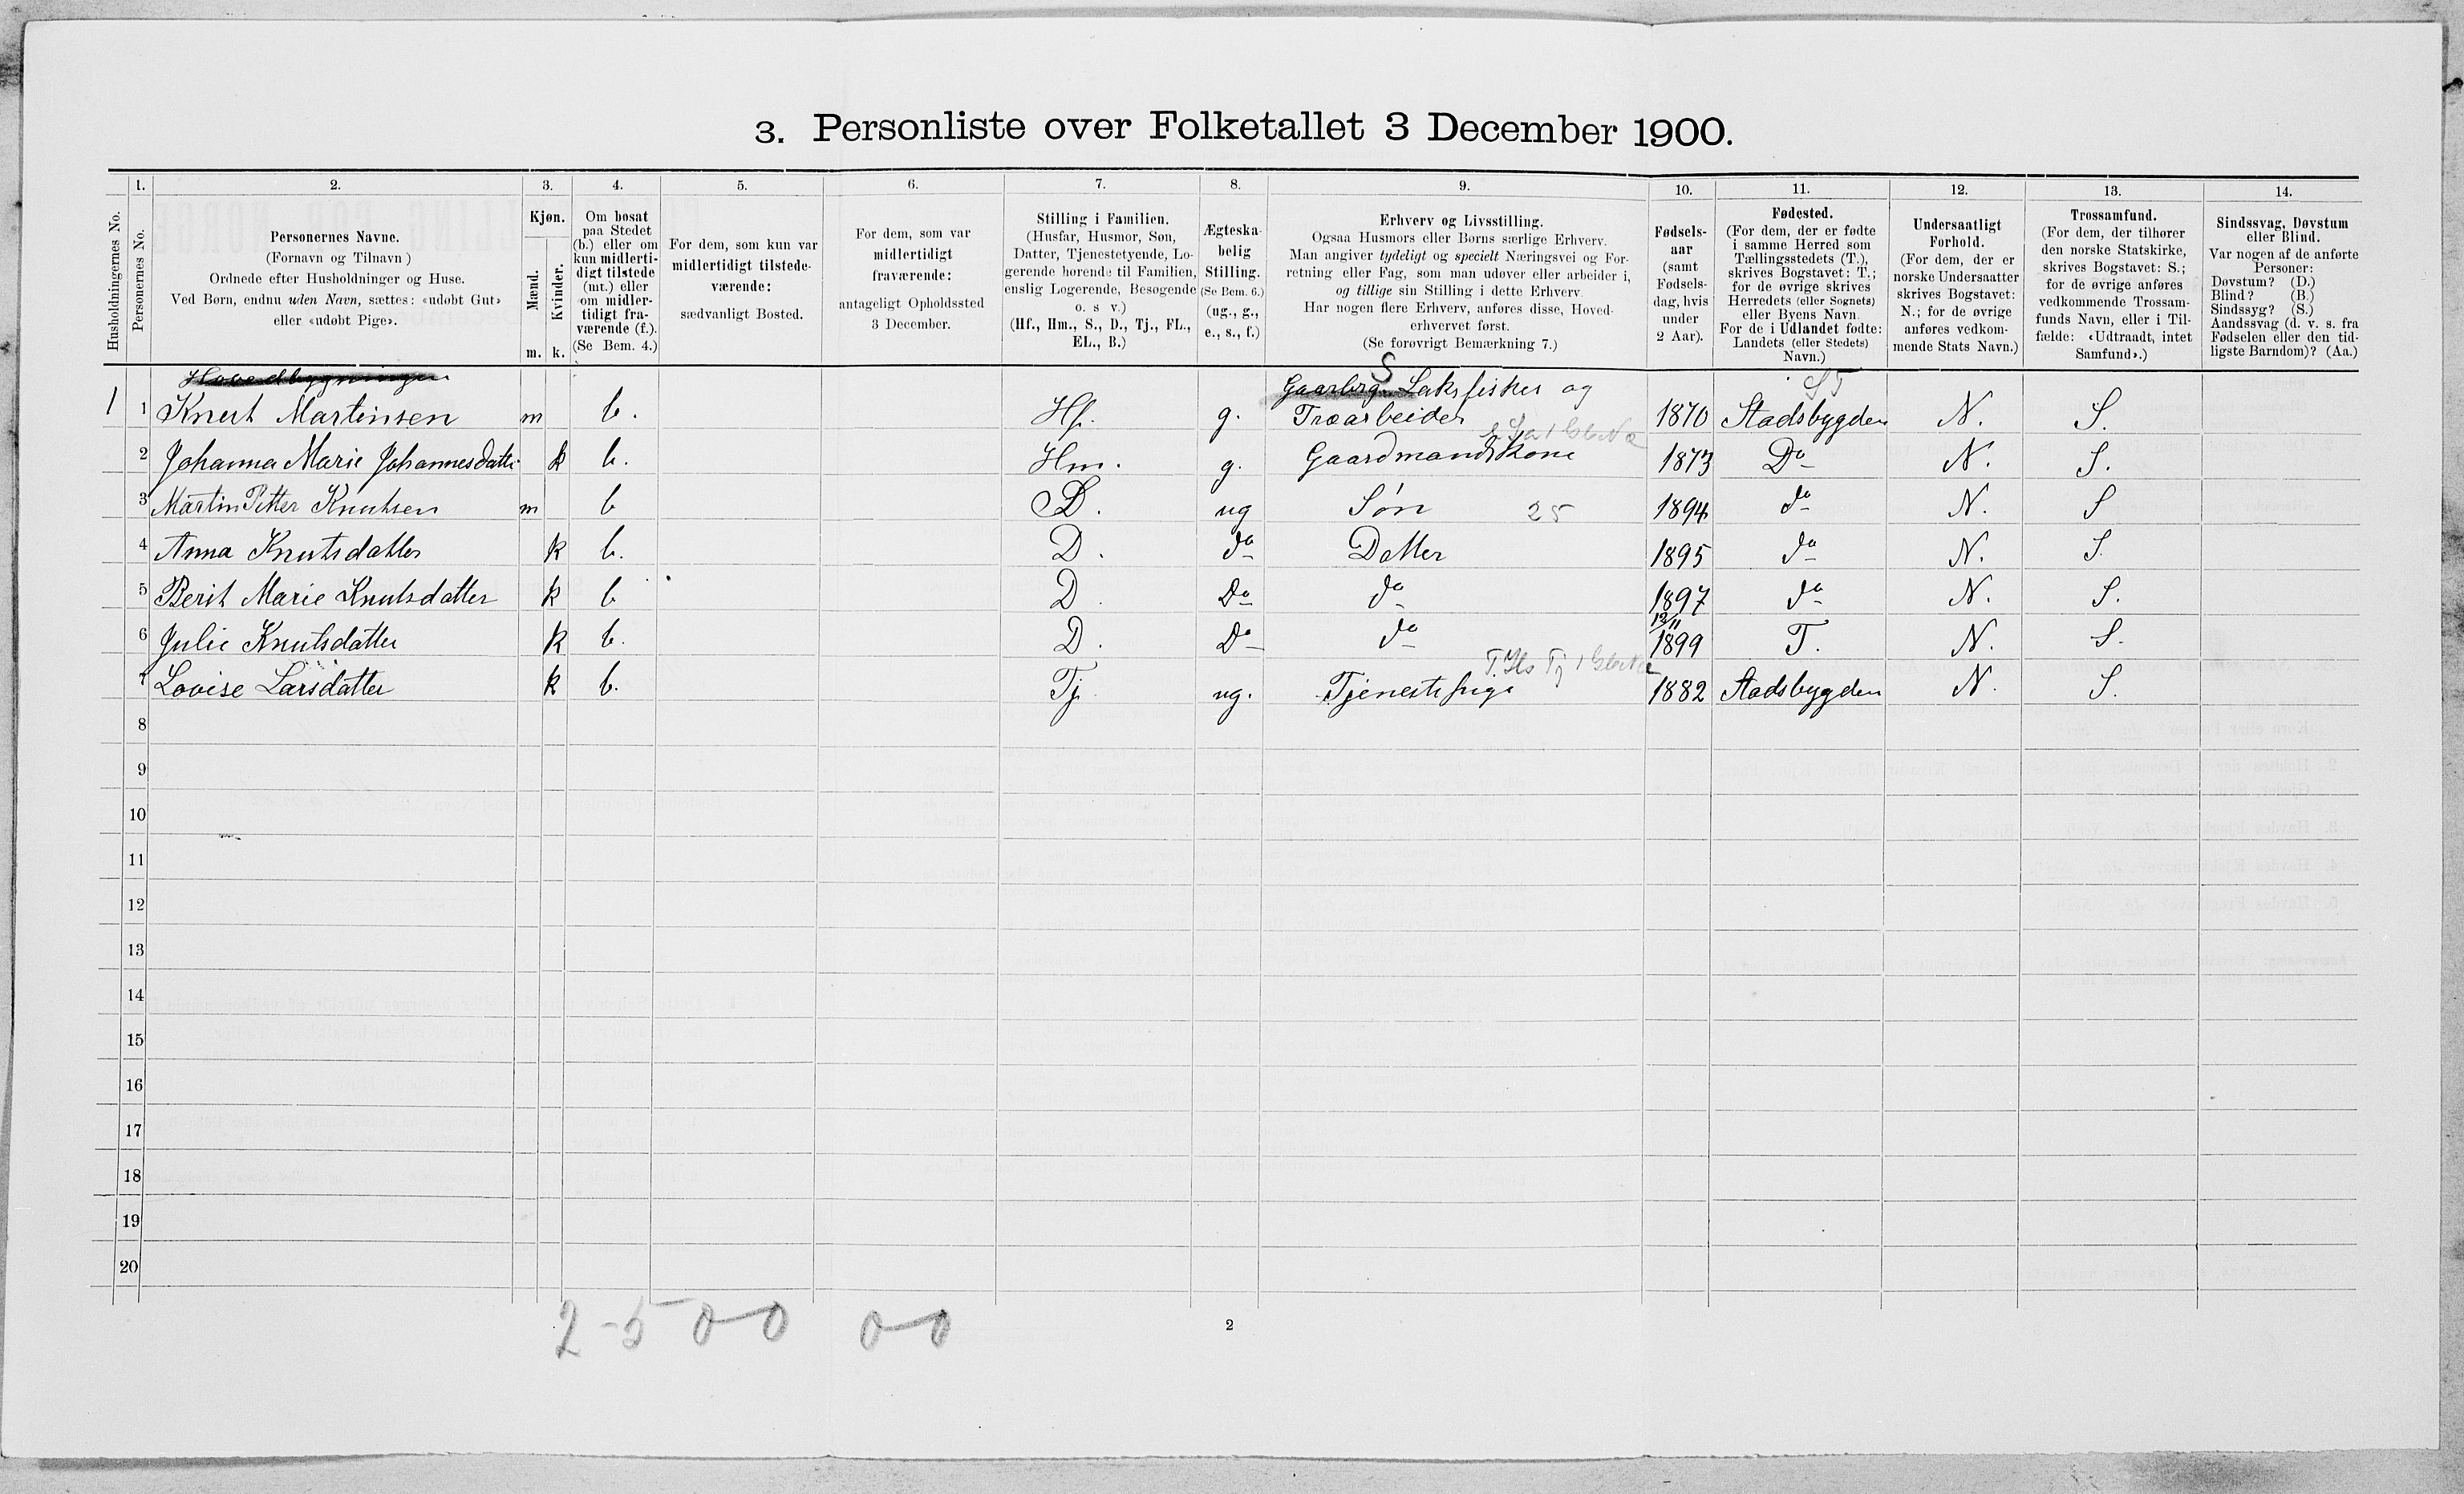 3. Personliste over Folketallet 3 December 1900.
1. 2. 3. 4. 5. 6. 7. 8. 9. 10. 11. 12. 13. 14.
Husholdningernes No.
Personernes No.
Personernes Navne.
(Fornavn og Tilnavn )
Ordnede efter Husholdninger og Huse.
Ved Børn, endnu uden Navn, sættes: «udøbt Gut»
eller «udøbt Pige».
Kjøn.
Mænd.
Kvinder.
m. k.
Om bosat
paa Stedet
(b.) eller om
kun midlerti-
digt tilstede
(mt.) eller
om midler-
tidigt fra-
værende (f.).
(Se Bem. 4.)
For dem, som kun var
midlertidigt tilstede-
værende:
sædvanligt Bosted.
For dem, som var
midlertidigt
fraværende:
antageligt Opholdssted
3 December.
Stilling i Familien.
(Husfar, Husmor, Søn,
Datter, Tjenestetyende, Lo-
gerende hørende til Familien,
enslig Logerende, Besøgende
o. s v.)
(Hf., Hm., S., D., Tj., FL.,
EL., B.)
Ægteska-
belig
Stilling.
(Se Bem. 6.)
(ug., g.,
e., s., f.)
Erhverv og Livsstilling.
Ogsaa Husmors eller Børns særlige Erhverv.
Man angiver tydeligt og specielt Næringsvei og For-
retning eller Fag, som man udøver eller arbeider i,
og tillige sin Stilling i dette Erhverv.
Har nogen flere Erhverv, anføres disse, Hoved-
erhvervet først.
(Se forøvrigt Bemærkning 7.)
Fødsels-
aar
(samt
Fødsels-
dag, hvis
under
2 Aar).
Fødested.
(For dem, der er fødte
i samme Herred som
Tællingsstedets (T.),
skrives Bogstavet: T.;
for de øvrige skrives
Herredets (eller Sognets)
eller Byens Navn.
For de i Udlandet fødte:
Landets (eller Stedets)
Navn.)
Undersaatligt
Forhold.
(For dem, der er
norske Undersaatter
skrives Bogstavet:
N.; for de øvrige
anføres vedkom-
mende Stats Navn.)
Trossamfund.
(For dem, der tilhører
den norske Statskirke,
skrives Bogstavet: S.;
for de øvrige anføres
vedkommende Trossam-
funds Navn, eller i Til-
fælde: «Udtraadt, intet
Samfund».)
Sindssvag, Døvstum
eller Blind.
Var nogen af de anførte
Personer:
Døvstum? (D.)
Blind? (B.)
Sindssyg? (S.)
Aandssvag (d. v. s. fra
Fødselen eller den tid-
ligste Barndom)? (Aa.)
Hovedbygningen
S
Gaardbrg. Laksfisker og
ST
1 1 Knut Martinsen m b. Hf. g. Træarbeider 1870 Stadsbygden N. S.
2 Johanna Marie Johannesdatter k b. Hm. g. Gaardmands Kone 1873 Do N. S.
3 Martin Petter Knutsen m b S. ug Søn 25 1894 do N. S
4 Anna Knutsdatter k b. D. do Datter 1895 do N. S.
5 Berit Marie Knutsdatter k b D. Do do 1897 do N. S.
12/11
6 Julie Knutsdatter k b. D. Do do 1899 T. N. S.
7 Lovise Larsdatter k b. Tj. ug. Tjenestepige 1882 Stadsbygden N. S.
8
9
10
11
12
13
14
15
16
17
18
19
20
2-5 0-0 0-0
2